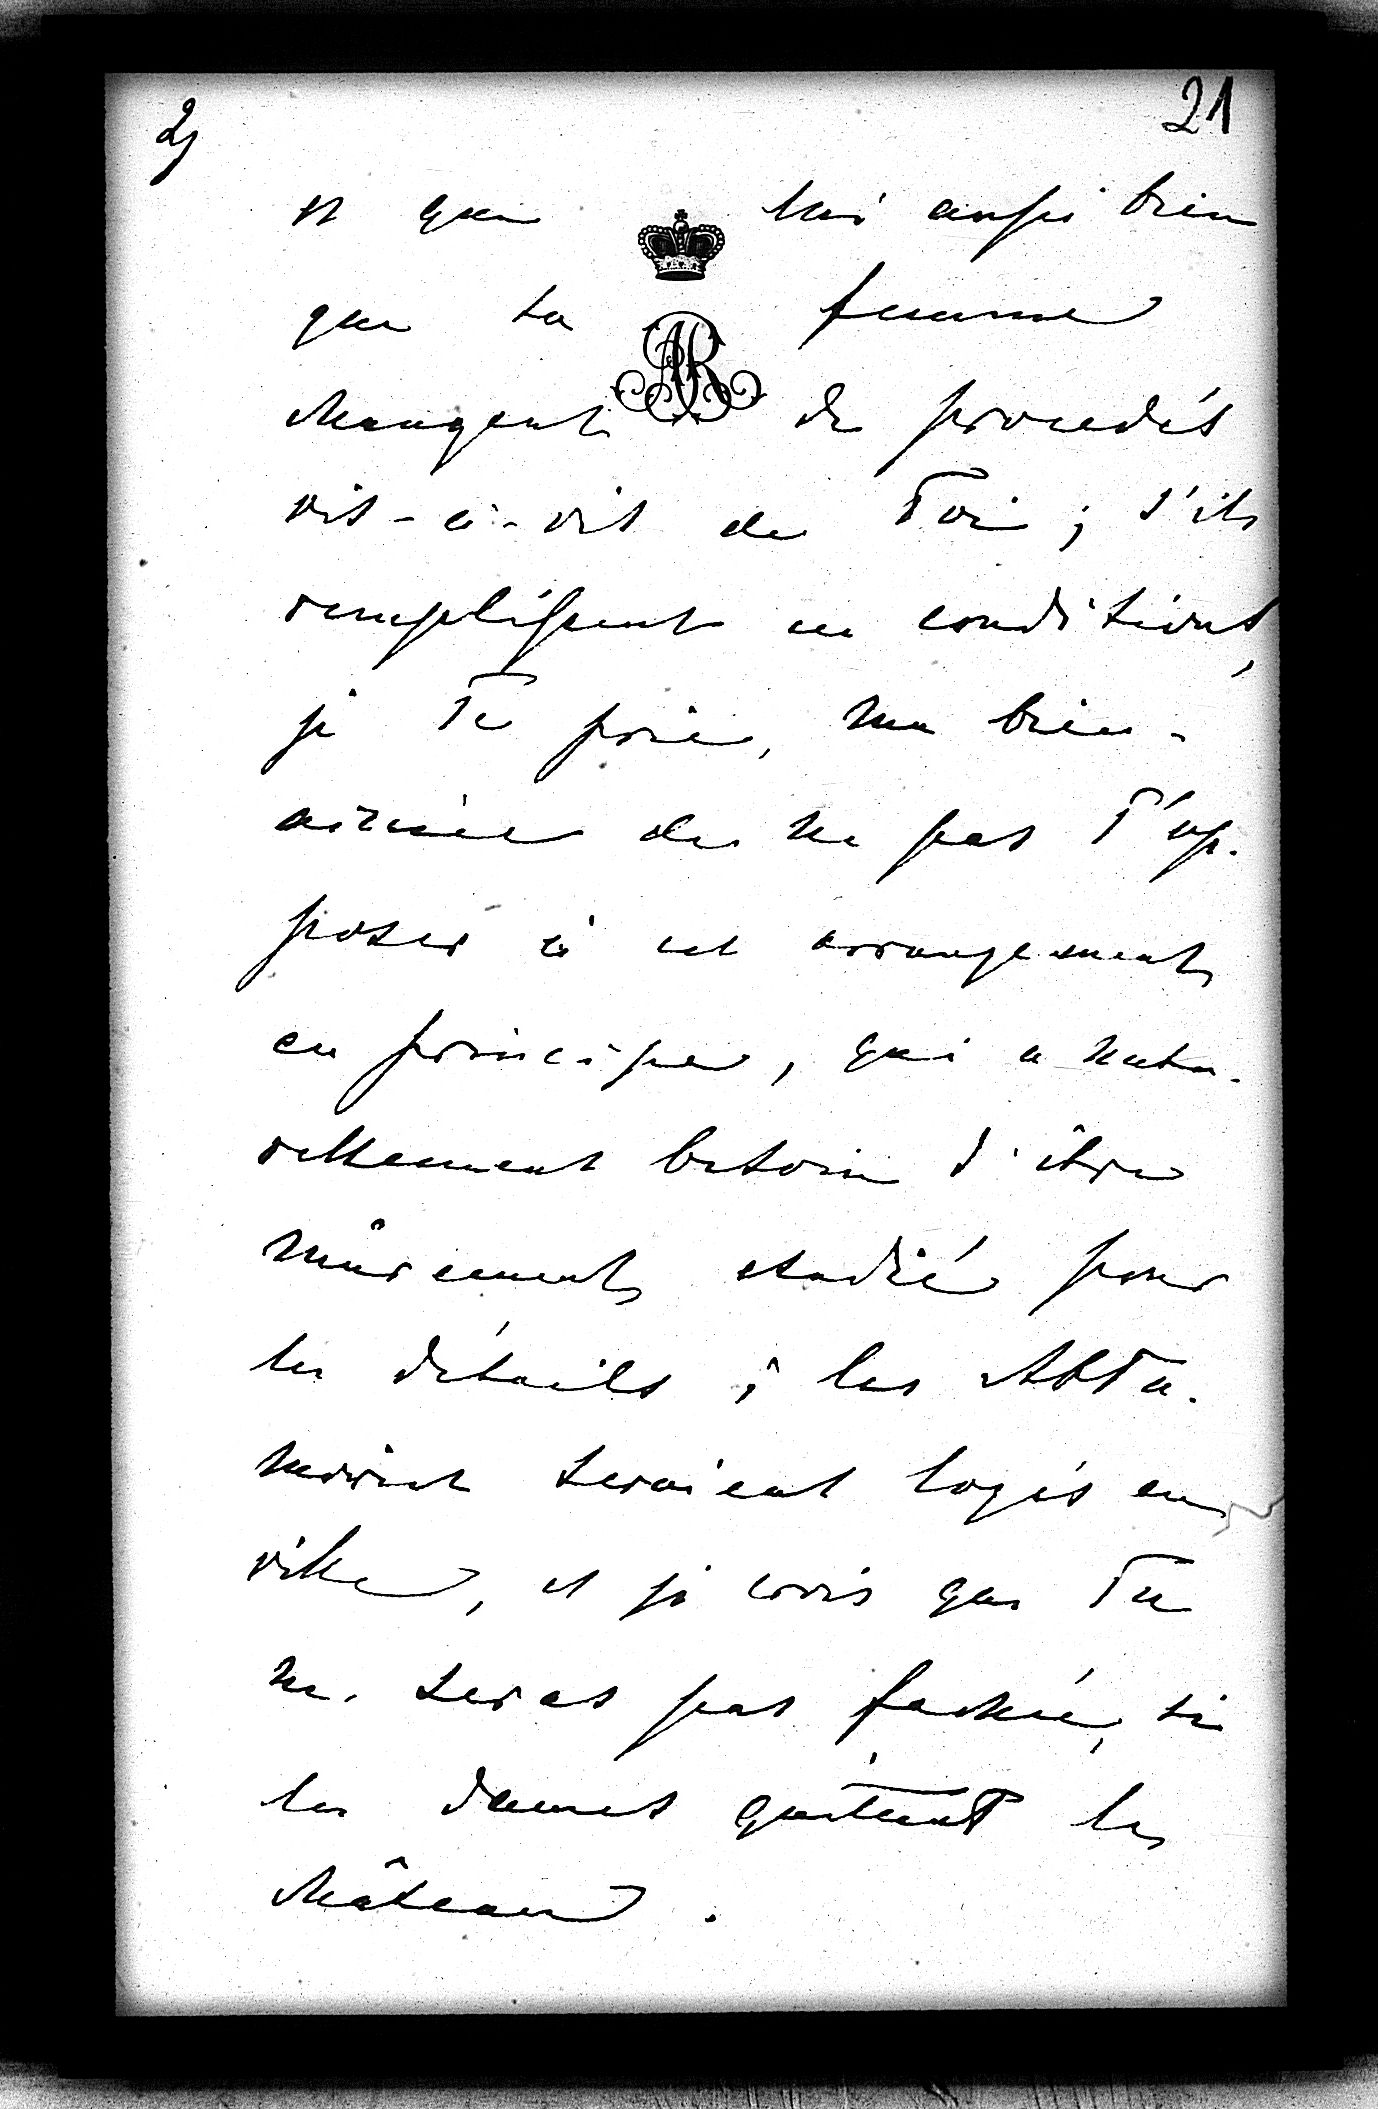 2) 21
et que lui aussi bien
que sa femme
changent de procedés
vis-à-vis de Toi ; s'ils
remplissent ces conditions,
je Te prie, ma bien-
aimée de ne pas T'op-
poser à cet arrangement
en principe, qui a natu-
rellement besoin d'être
mûrement étudié pour
les détails ; les
seraient logés en
ville, et je crois que Tu
ne seras pas fachée, si
les dames quittent le
château .